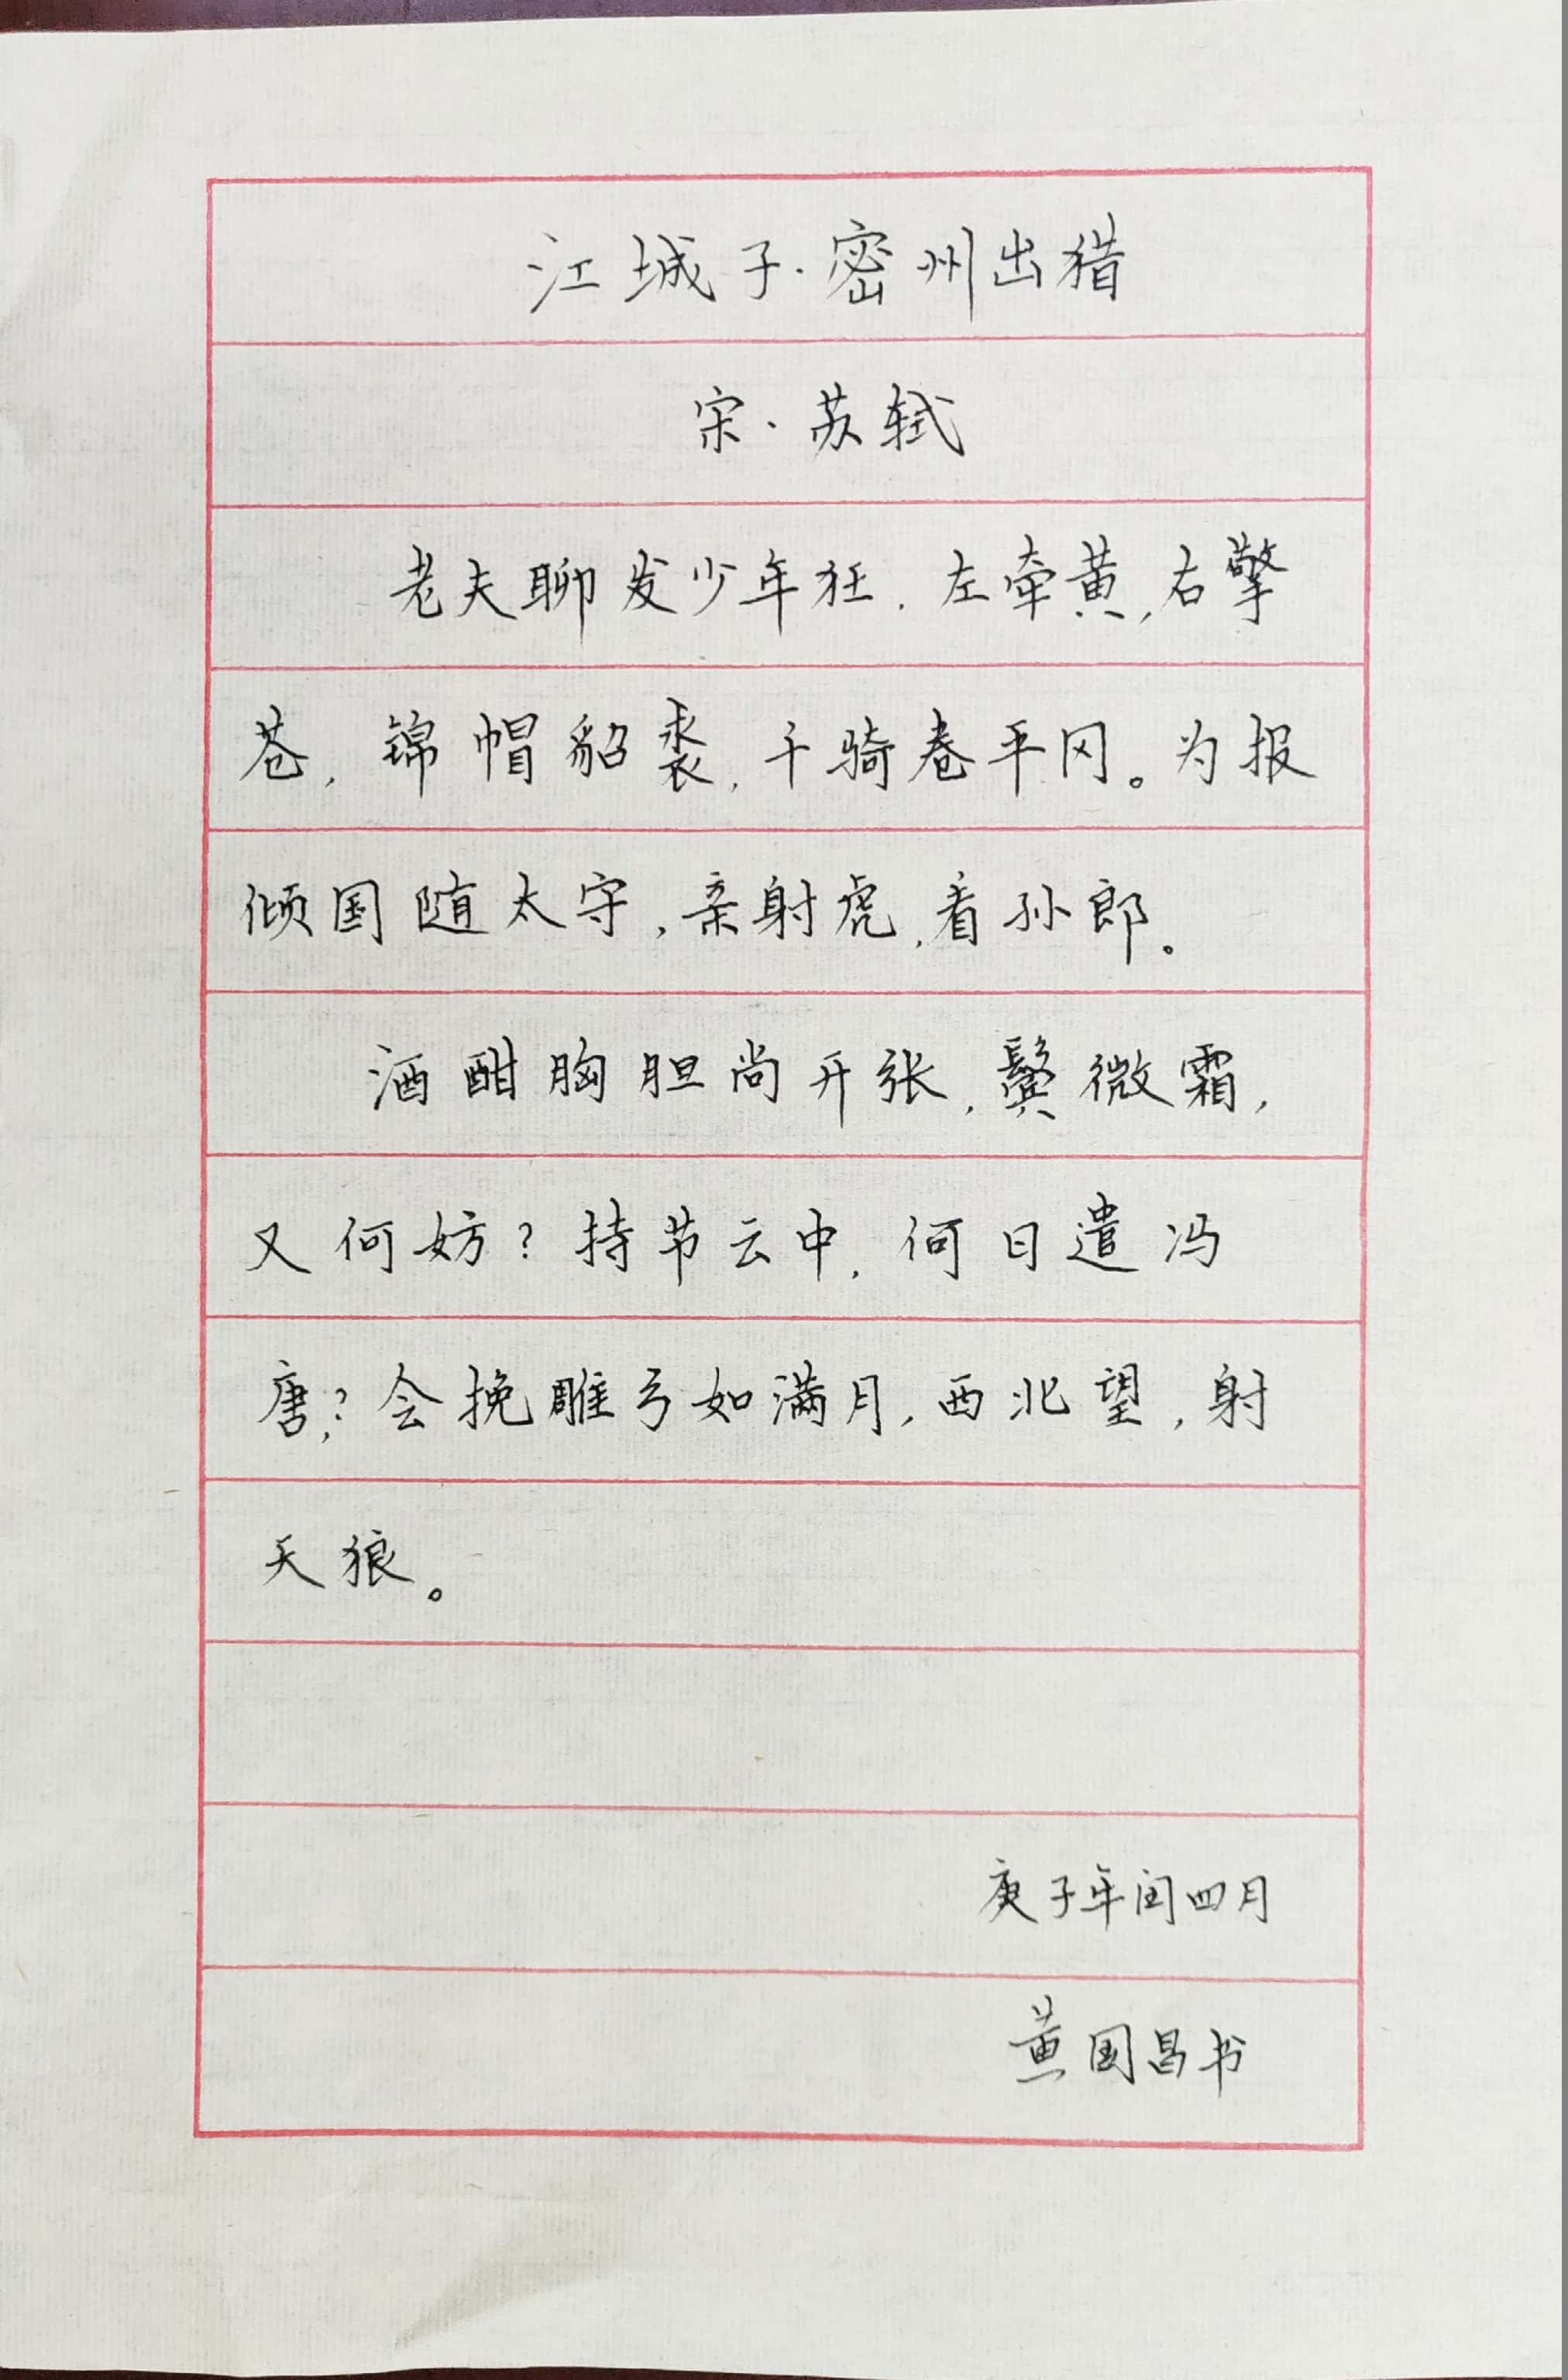 江城子·密州出猎
宋·苏轼
老夫聊发少年狂，左牵黄，右擎
苍，锦帽貂裘，千骑卷平冈。为报
倾国随太守，亲射虎，看孙郎。
酒酣胸胆尚开张，鬓微霜，
又何妨？持节云中，何日遣冯
唐，？会挽雕弓如满月，西北望，射
天狼。
庚子年闰四月
黄国昌书